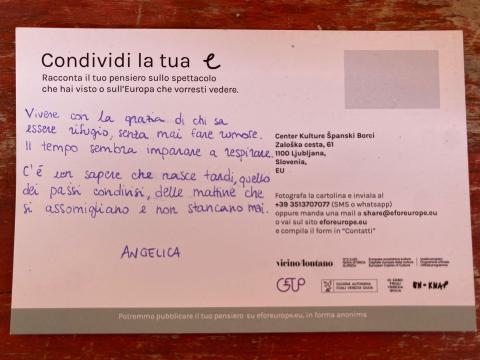 Condividi la tua e
Racconta il tuo pensiero sullo spettacolo
che hai visto o sull'Europa che vorresti vedere.
Vivere con la grazia di chi sa
essere rifugio, senza mai fare rumore.
Il tempo sembra imparare a respirare.
C'è un sapere che nasce tardi, quello
dei passi condivisi, delle mattine che
si assomigliano e non stancano mai.
ANGELICA
Center Kulture Španski Borci
Zaloška cesta, 61
1100 Ljubljana,
Slovenia,
EU
Fotografa la cartolina e inviala al
+39 3513707077 (SMS o whatsapp)
oppure manda una mail a share@eforeurope.eu
o vai sul sito eforeurope.eu
e compila il form in "Contatti"
vicino/lontano
REGIONE AUTONOMA
FRIULI VENEZIA GIULIA
IO SONO
FRIULI
VENEZIA
GIULIA
EN-KNAP
Potremmo pubblicare il tuo pensiero su eforeurope.eu, in forma anonima